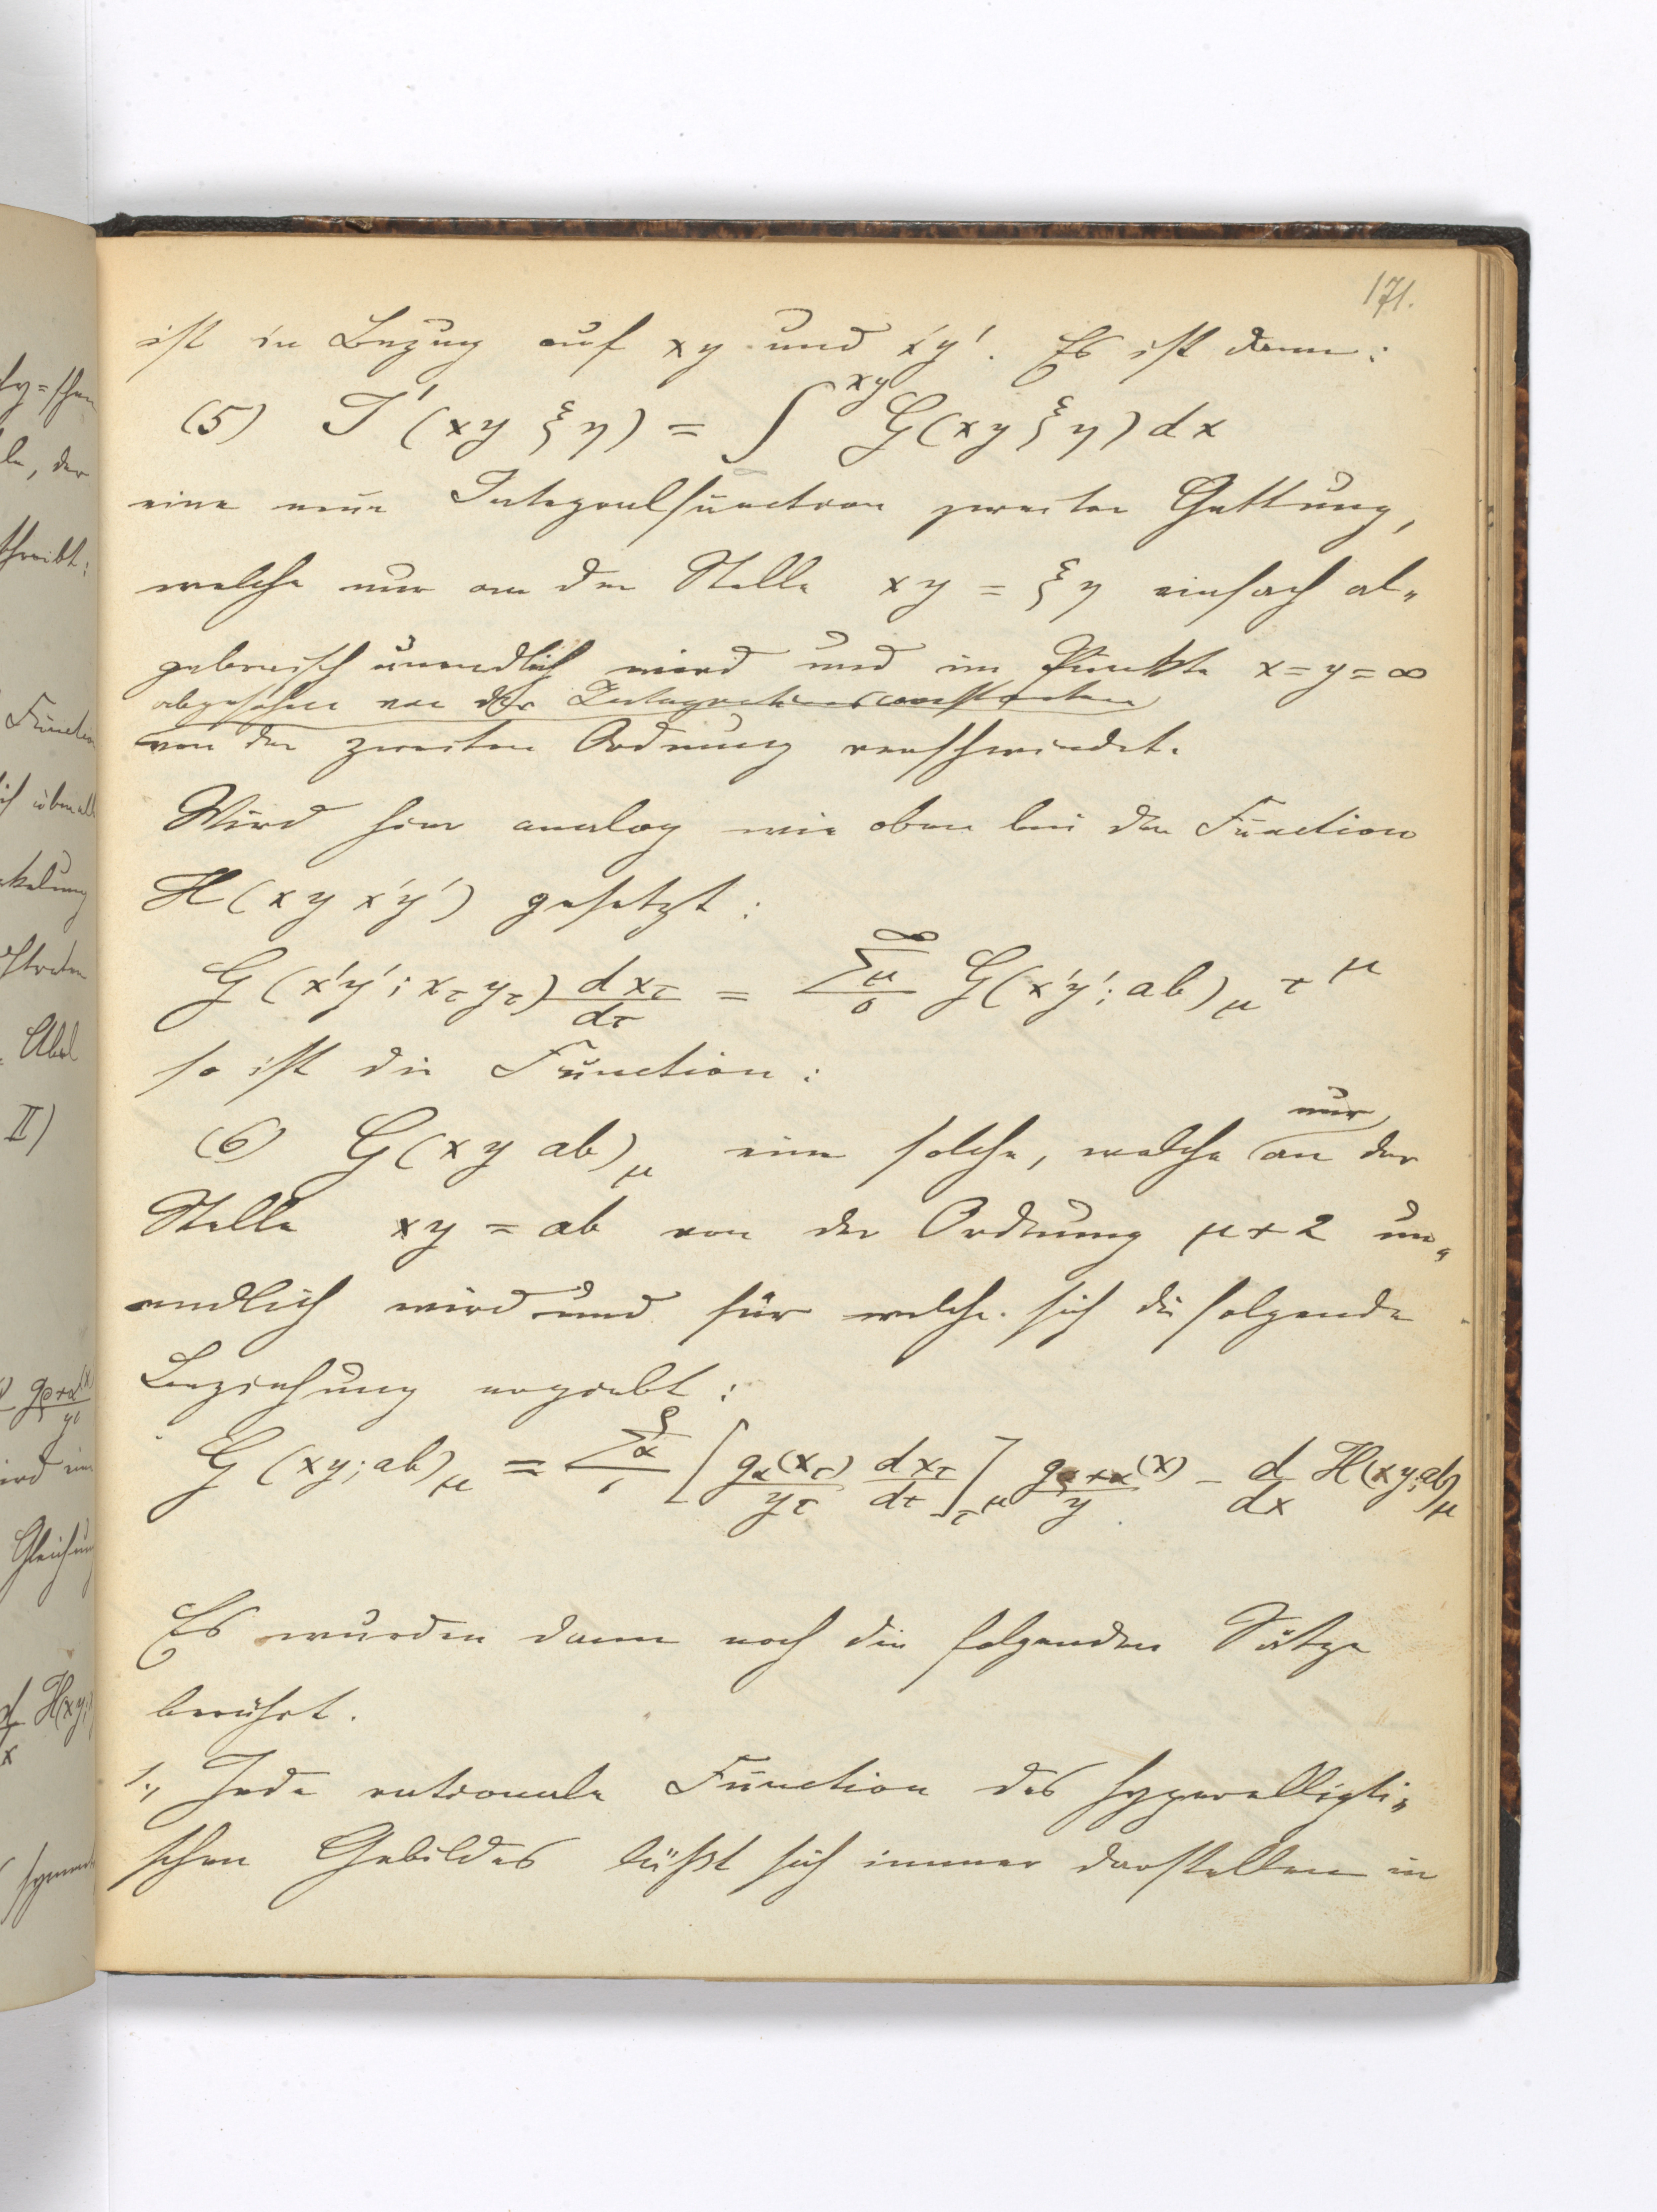 171.
ist in Bezug auf xy und x'y'. Es ist dann:
(5) J'(xy ξη) = ∫^{xy} G(xy ξη) dx
eine neue Integralfunction zweiter Gattung,
welche nur an der Stelle xy = ξη einfach al„
gebraisch unendlich wird und im Punkte x=y=∞
abgesehen von der Integrationsconstanten
von der zweiten Ordnung verschwindet.
Wird hier analog wie oben bei der Function
H(xy x'y') gesetzt:
G(x'y'; x_τ y_τ) dx_τ/dτ = Σ_μ^∞_0 G(x'y'; ab)_μ τ^μ
so ist die Function:
(6) G(xy ab)_μ eine solche, welche nur an der
Stelle xy = ab von der Ordnung μ+2 un„
endlich wird und für welche sich die folgende
Beziehung ergiebt:
G(xy; ab)_μ = Σ_α^ρ_1 [g_α(x_τ)/y_τ dx_τ/dτ]_{τ^μ} g_{ρ+α}(x)/y – d/dx H(xy; ab)_μ
Es wurden dann noch die folgenden Sätze
berührt.
1., Jede rationale Function des hyperellipti„
schen Gebildes läßt sich immer darstellen in